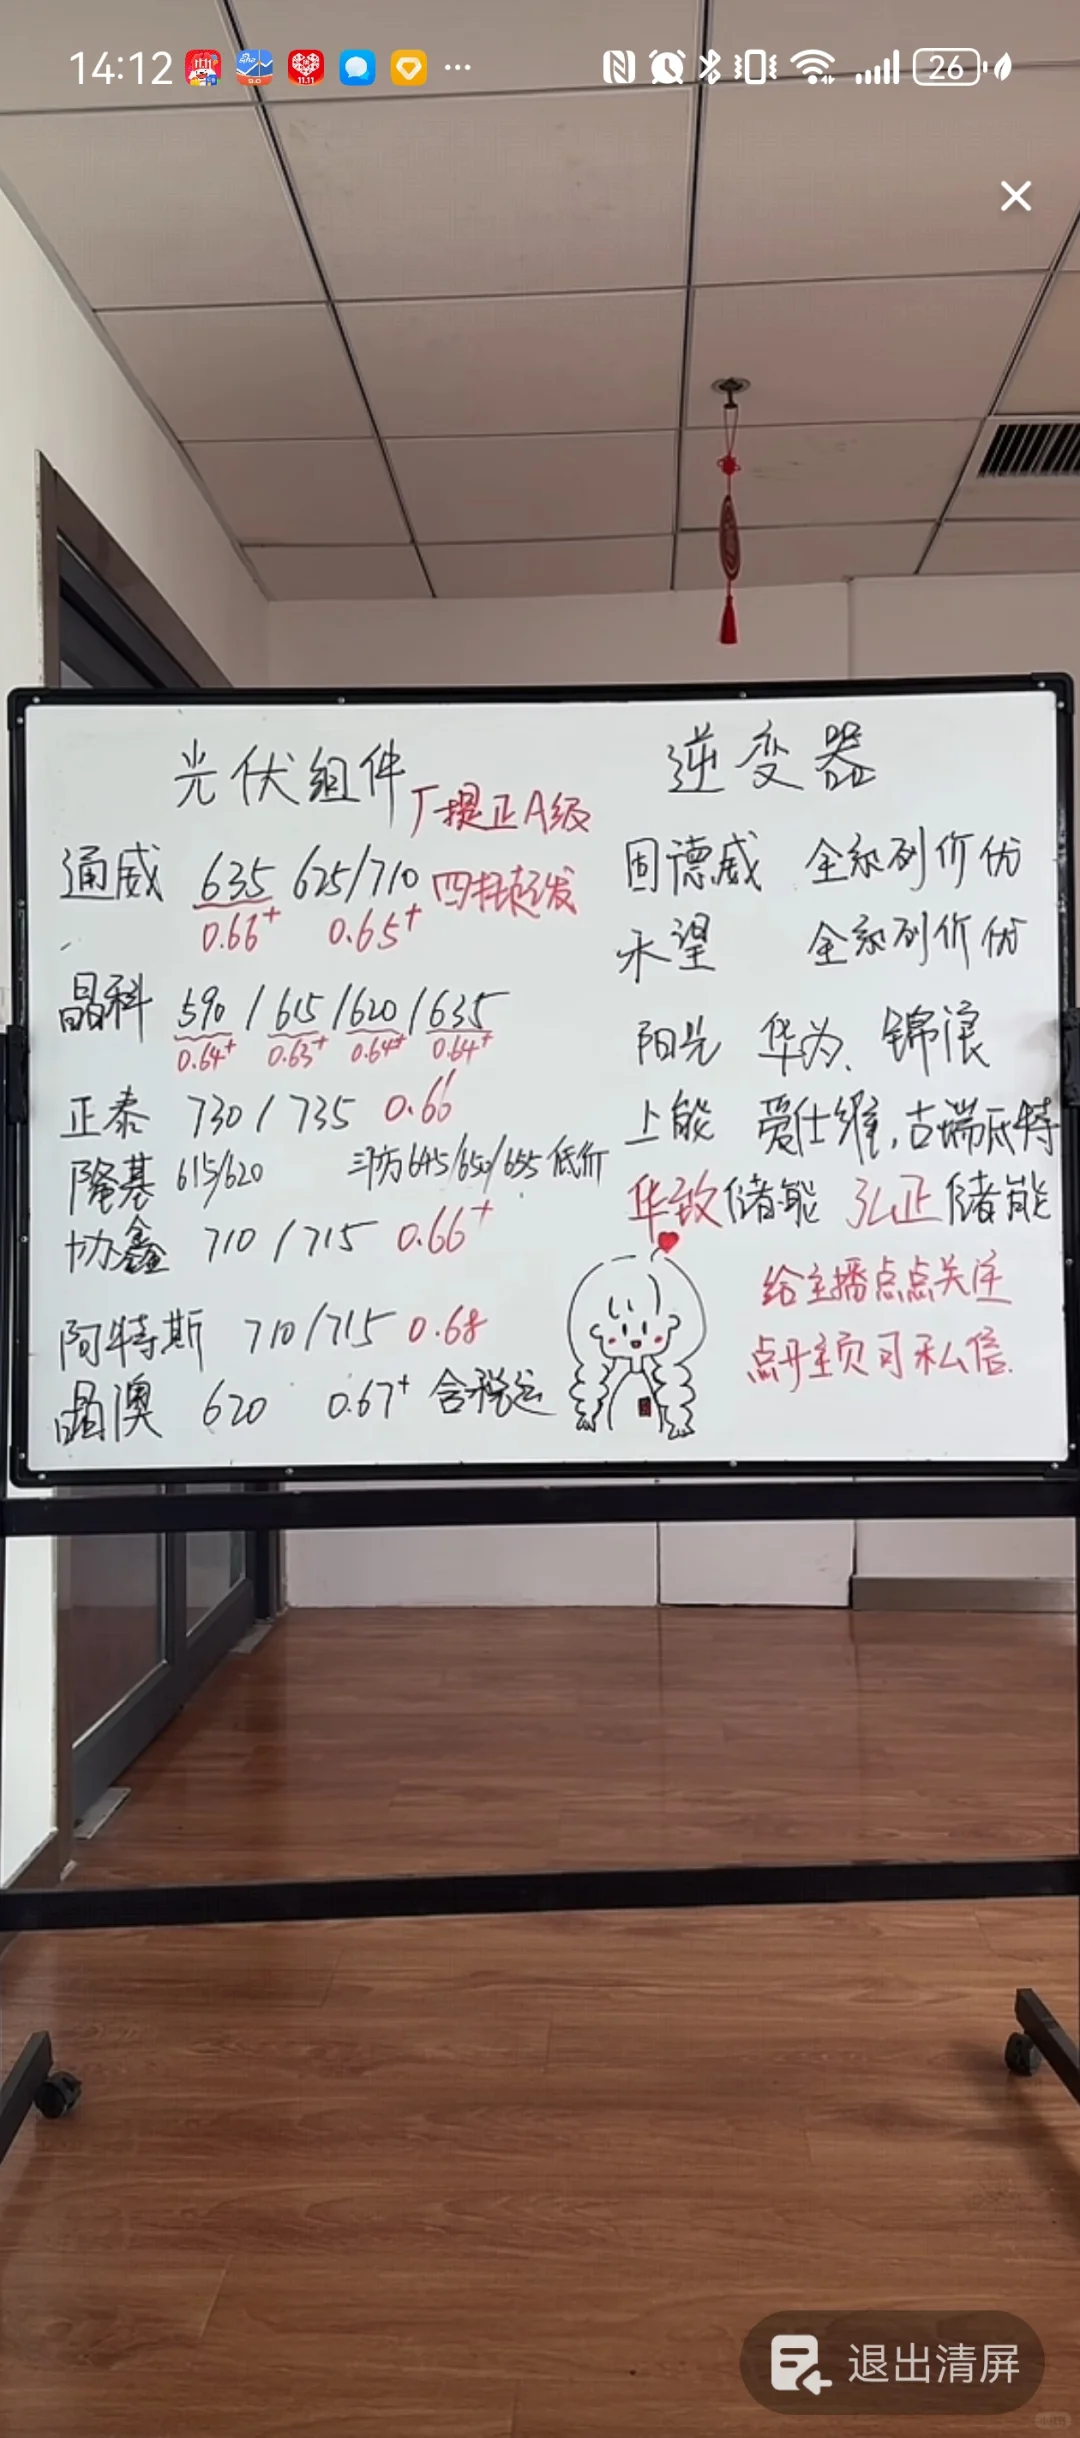 14:12
26
光伏组件
厂提正A级
通威 635 625/710 四托起发
0.66+ 0.65+
晶科 590/615/620/635
0.64+ 0.63+ 0.64+ 0.64+
正泰 730/735 0.66
隆基 615/620 三防645/650/655低价
协鑫 710/715 0.66+
阿特斯 710/715 0.68
晶澳 620 0.67+ 含税运
逆变器
固德威 全系列价优
禾望 全系列价优
阳光 华为、锦浪
上能 爱仕维,古瑞瓦特
华致储能 弘正储能
给主播点点关注
点开主页可私信.
退出清屏